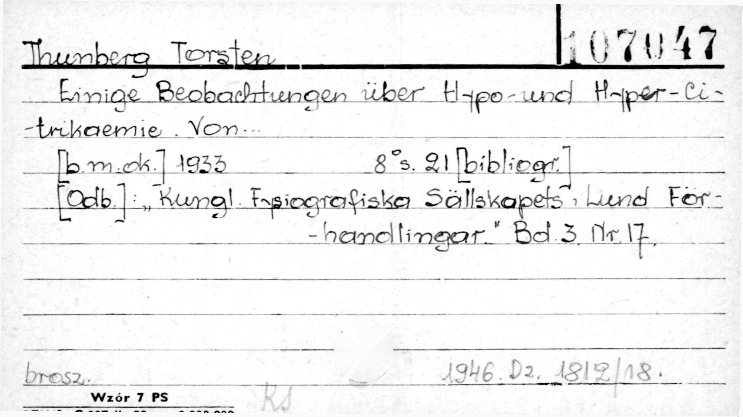 Thunberg Torsten
107047
Einige Beobachtungen über Hypo- und Hyper-Ci-
-trikaemie. Von...
[b.m.ok.] 1933 8° s. 21 [bibliogr.]
[Odb.]: „Kungl. Fysiografiska Sällskapets i Lund För-
-handlingar." Bd. 3. Nr. 17.
brosz.
1946. Dz. 1812/18.
Wzór 7 PS
KS